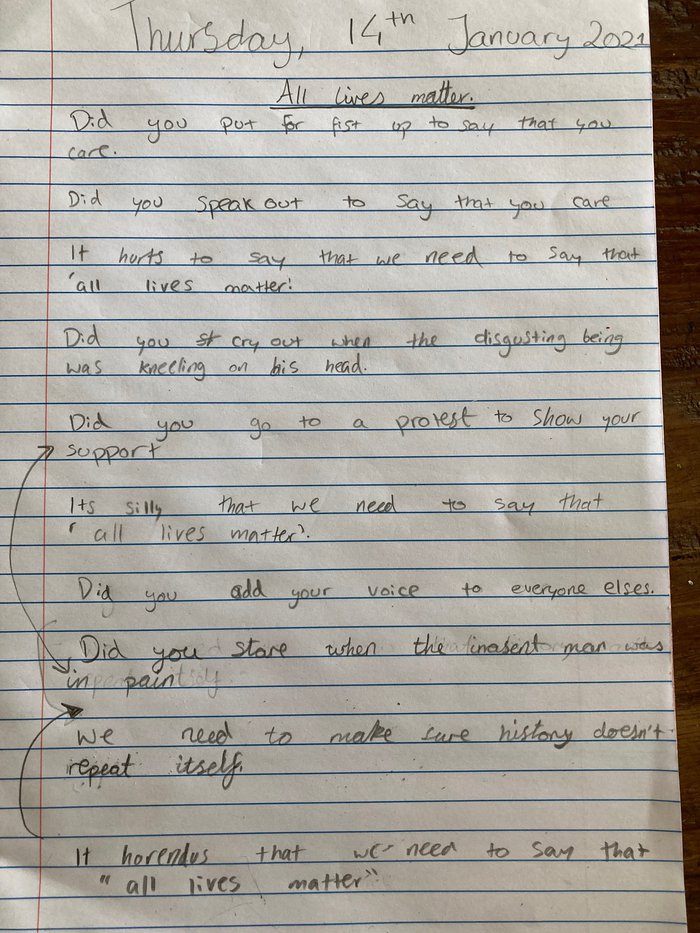 Thursday, 14th January 2021
All lives matter.
Did you put for fist up to say that you
care.
Did you speak out to say that you care
It hurts to say that we need to say that
'all lives matter!
Did you st cry out when the disgusting being
was kneeling on his head.
Did you go to a protest to show your
support
Its silly that we need to say that
' all lives matter'.
Did you add your voice to everyone elses.
Did you stare when the inasent man was
in pain
We need to make sure history doesn't
repeat itself.
It horendus that we need to say that
" all lives matter"